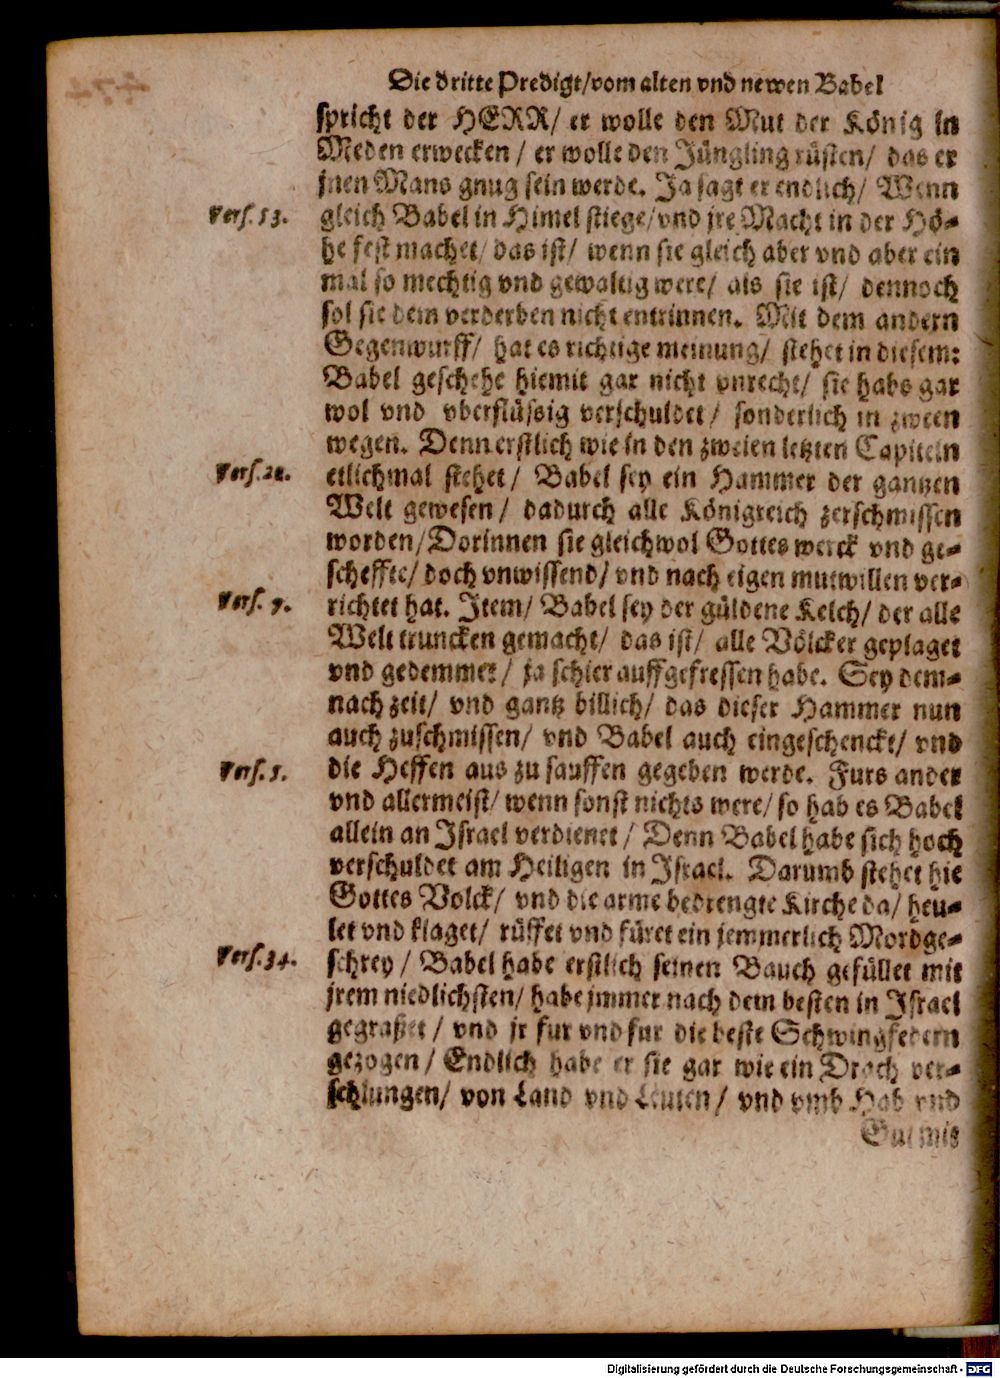 Die dritte Predigt/vom alten vnd newen Babel
spricht der HERR/ er wolle den Mut der König in
Meden erwecken / er wolle den Jüngling rüsten/ das er
jnen Mans gnug sein werde. Ja sagt er endlich/ Wenn
Vers. 53.
gleich Babel in Himel stiege/vnd jre Macht in der Hö-
he fest machet/ das ist/ wenn sie gleich aber vnd aber ein
mal so mechtig vnd gewaltig were/ als sie ist/ dennoch
sol sie dem verderben nicht entrinnen. Mit dem andern
Gegenwurff/ hat es richtige meinung/ stehet in diesem:
Babel geschehe hiemit gar nicht vnrecht/ sie habs gar
wol vnd vberflüssig verschuldet/ sonderlich in zween
wegen. Denn erstlich wie in den zweien letzten Capiteln
Vers. 28.
etlichmal stehet/ Babel sey ein Hammer der gantzen
Welt gewesen/ dadurch alle Königreich zerschmissen
worden/Dorinnen sie gleichwol Gottes werck vnd ge-
scheffte/ doch vnwissend/ vnd nach eigen mutwillen ver-
Vers. 7.
richtet hat. Item/ Babel sey der güldene Kelch/ der alle
Welt truncken gemacht/ das ist/ alle Völcker geplaget
vnd gedemmet/ ja schier auffgefressen habe. Sey dem-
nach zeit/ vnd gantz billich/ das dieser Hammer nun
auch zuschmissen/ vnd Babel auch eingeschenckt/ vnd
Vers. 5.
die Heffen aus zu sauffen gegeben werde. Furs ander
vnd allermeist/ wenn sonst nichts were/ so hab es Babel
allein an Israel verdienet / Denn Babel habe sich hoch
verschuldet am Heiligen in Israel. Darumb stehet hie
Gottes Volck/ vnd die arme bedrengte Kirche da/ heu-
let vnd klaget/ rüffet vnd füret ein jemmerlich Mordge-
Vers. 34.
schrey / Babel habe erstlich seinen Bauch gefüllet mit
jrem niedlichsten/ habe jmmer nach dem besten in Israel
gegraßet / vnd jr fur vnd fur die beste Schwingfedern
gezogen / Endlich habe er sie gar wie ein Drach ver-
schlungen/ von Land vnd Leuten / vnd vmb Hab vnd
Gut mis
Digitalisierung gefördert durch die Deutsche Forschungsgemeinschaft - DFG